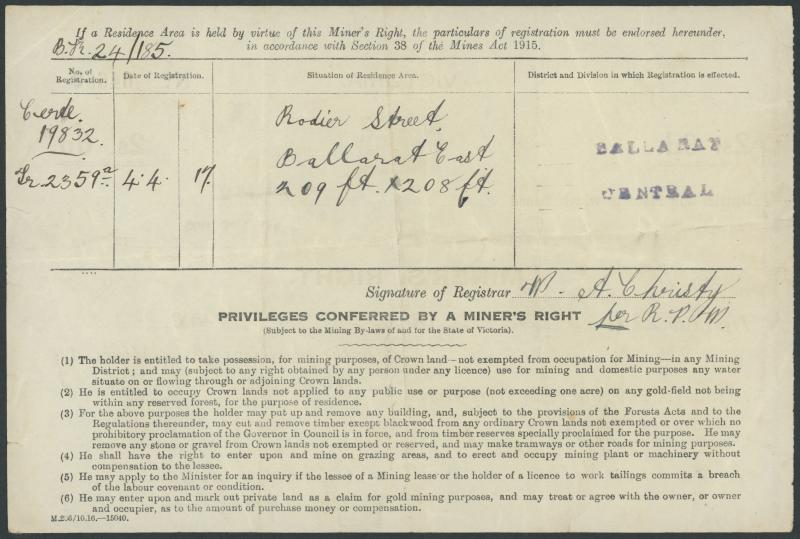 If a Residence Area is held by virtue of this Miner's Right, the particulars of registration must be endorsed hereunder,
in accordance with Section 38 of the Mines Act 1915.
24/185.
No. of Registration.
Date of Registration.
Situation of Residence Area.
District and Division in which Registration is effected.
19832.
Tr. 2359a
4. 4. 17.
Rodier Street,
Ballarat East
209 ft. x 208 ft.
BALLARAT
CENTRAL
Signature of Registrar W. A. Christy
per R. P. W.
PRIVILEGES CONFERRED BY A MINER'S RIGHT
(Subject to the Mining By-laws of and for the State of Victoria).
(1) The holder is entitled to take possession, for mining purposes, of Crown land—not exempted from occupation for Mining—in any Mining
District; and may (subject to any right obtained by any person under any licence) use for mining and domestic purposes any water
situate on or flowing through or adjoining Crown lands.
(2) He is entitled to occupy Crown lands not applied to any public use or purpose (not exceeding one acre) on any gold-field not being
within any reserved forest, for the purpose of residence.
(3) For the above purposes the holder may put up and remove any building, and, subject to the provisions of the Forests Acts and to the
Regulations thereunder, may cut and remove timber except blackwood from any ordinary Crown lands not exempted or over which no
prohibitory proclamation of the Governor in Council is in force, and from timber reserves specially proclaimed for the purpose. He may
remove any stone or gravel from Crown lands not exempted or reserved, and may make tramways or other roads for mining purposes.
(4) He shall have the right to enter upon and mine on grazing areas, and to erect and occupy mining plant or machinery without
compensation to the lessee.
(5) He may apply to the Minister for an inquiry if the lessee of a Mining lease or the holder of a licence to work tailings commits a breach
of the labour covenant or condition.
(6) He may enter upon and mark out private land as a claim for gold mining purposes, and may treat or agree with the owner, or owner
and occupier, as to the amount of purchase money or compensation.